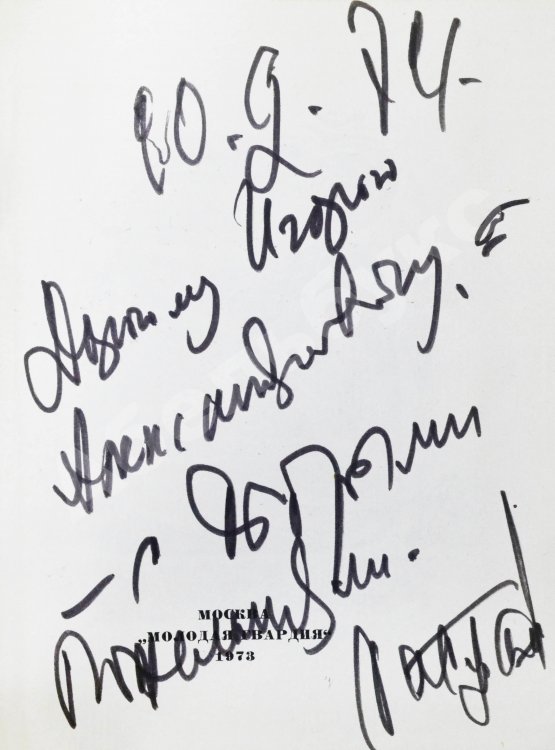 20.9.74.
Дорогому Игорю
Александровичу,
— с добрыми
пожеланиями.
МОСКВА
„МОЛОДАЯ ГВАРДИЯ“
1973